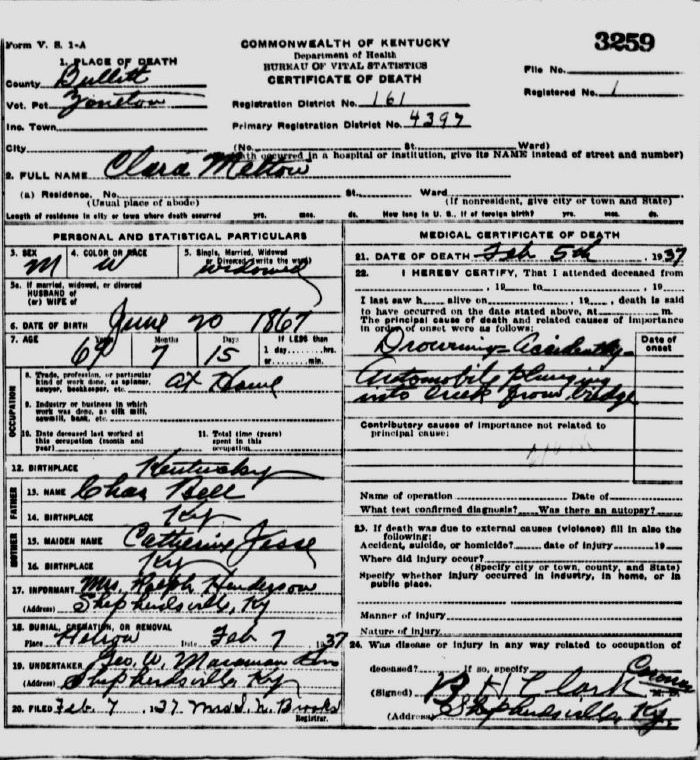 Form V. S. 1-A
COMMONWEALTH OF KENTUCKY
Department of Health
BUREAU OF VITAL STATISTICS
CERTIFICATE OF DEATH
3259
File No.
Registered No. 1
1. PLACE OF DEATH
County Bullitt
Vot. Pct. Zoneton
Inc. Town
City
Registration District No. 161
Primary Registration District No. 4397
(No. St. Ward)
death occurred in a hospital or institution, give its NAME instead of street and number)
2. FULL NAME Clara Melton
(a) Residence. No. St. Ward
(Usual place of abode) (If nonresident, give city or town and State)
Length of residence in city or town where death occurred yrs. mos. ds. How long in U. S., if of foreign birth? yrs. mos. ds.
PERSONAL AND STATISTICAL PARTICULARS
3. SEX M
4. COLOR OR RACE W
5. Single, Married, Widowed
or Divorced (write the word)
Widowed
5a. If married, widowed, or divorced
HUSBAND of
(or) WIFE of
6. DATE OF BIRTH June 20 1867
7. AGE Years Months Days If LESS than
69 7 15 1 day hrs.
or min.
OCCUPATION
8. Trade, profession, or particular
kind of work done, as spinner,
sawyer, bookkeeper, etc. At Home
9. Industry or business in which
work was done, as silk mill,
sawmill, bank, etc.
10. Date deceased last worked at
this occupation (month and
year)
11. Total time (years)
spent in this
occupation
12. BIRTHPLACE Kentucky
FATHER
13. NAME Chas Bell
14. BIRTHPLACE Ky
MOTHER
15. MAIDEN NAME Catherine
16. BIRTHPLACE Ky
17. INFORMANT Mrs. Ralph Henderson
(Address) Shepherdsville, Ky
18. BURIAL, CREMATION, OR REMOVAL
Place Hebron Date Feb 7 1937
19. UNDERTAKER Geo. W. Maraman Son
(Address) Shepherdsville, Ky
20. FILED Feb. 7, 1937 Mrs. Brooks
Registrar.
MEDICAL CERTIFICATE OF DEATH
21. DATE OF DEATH Feb 5th, 1937
22. I HEREBY CERTIFY, That I attended deceased from
, 19 to , 19
I last saw h alive on , 19 , death is said
to have occurred on the date stated above, at m.
The principal cause of death and related causes of importance
in order of onset were as follows:
Date of
onset
Drowning Acidently
Automobile plunging
into creek from bridge
Contributory causes of importance not related to
principal cause:
Name of operation Date of
What test confirmed diagnosis? Was there an autopsy?
23. If death was due to external causes (violence) fill in also the
following:
Accident, suicide, or homicide? date of injury 19
Where did injury occur?
(Specify city or town, county, and State)
Specify whether injury occurred in industry, in home, or in
public place.
Manner of injury
Nature of injury
24. Was disease or injury in any way related to occupation of
deceased? If so, specify
Coroner
(Signed) B H Clark M. D.
(Address) Shepherdsville, Ky.